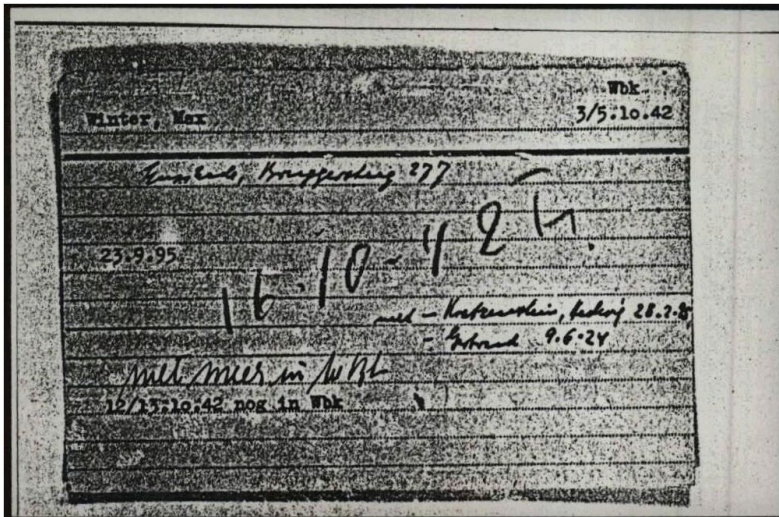 Wbk
Winter, Max 3/5.10.42
Enschede, Bruggersteeg 277
23.9.95
16-10-42
met - Katzenstein, Hedwig 28.2.
- 9.6.24
niet meer in WBK
12/13.10.42 nog in Wbk